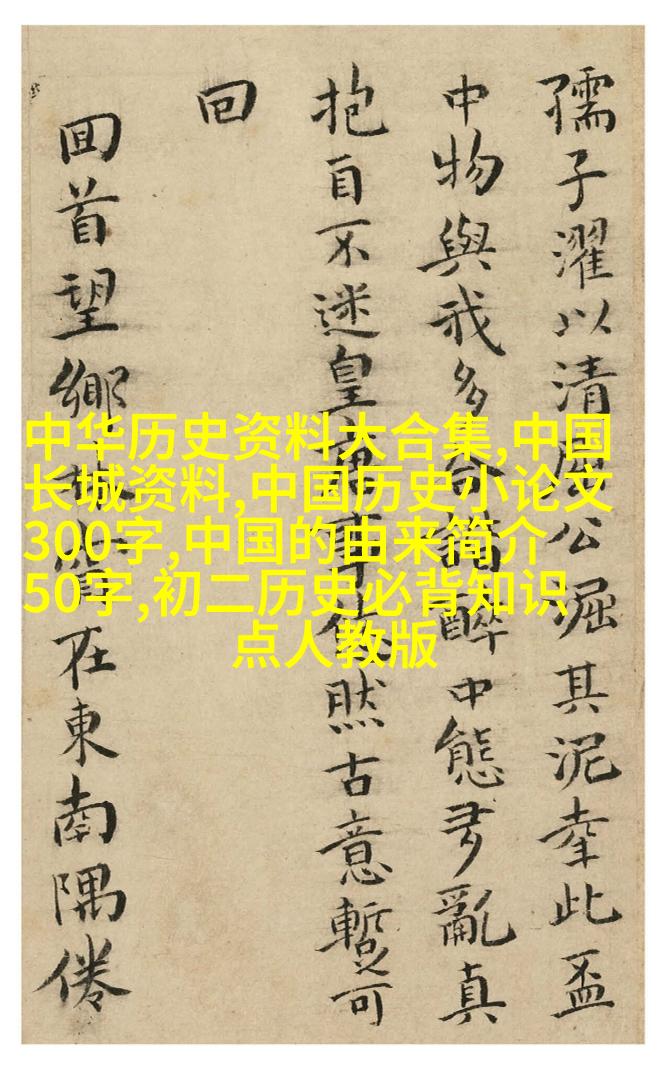 孺子濯以清屈公其泥幸此盃
中物與我多醉中態亂真
抱自不迷皇事依然古意暫可
回
回首望鄉在東南隅倦
中华历史资料大合集,中国
长城资料,中国历史小论文
300字,中国的由来简介
50字,初二历史必背知识
点人教版